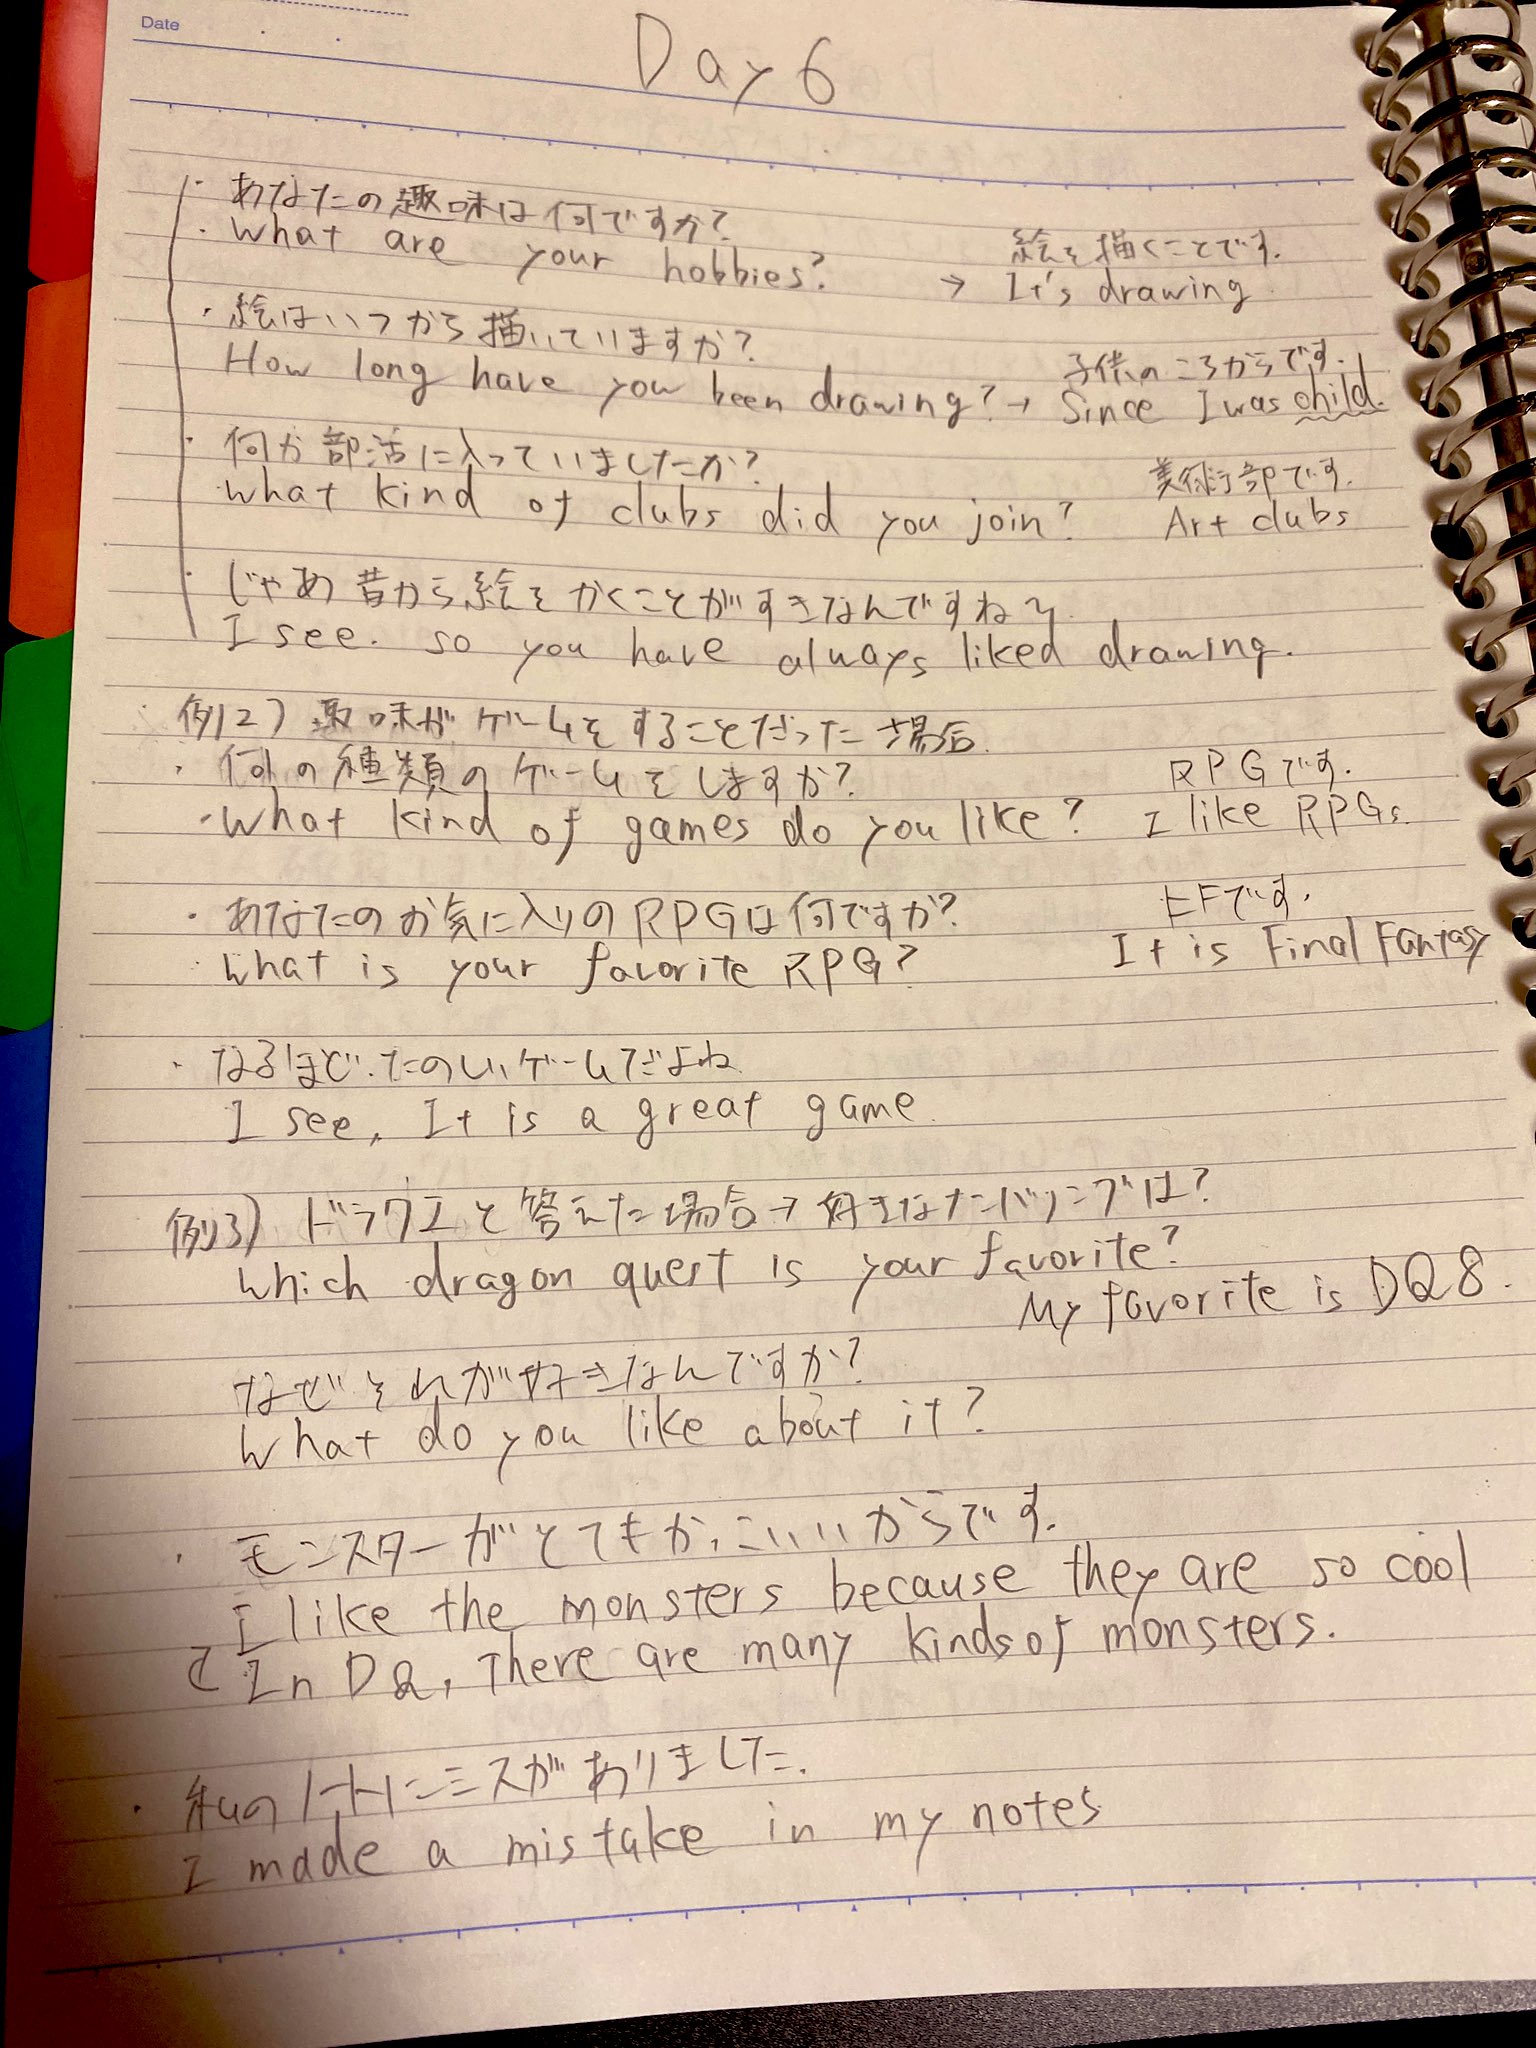 Date
Day 6
・あなたの趣味は何ですか?
・What are your hobbies?
絵を描くことです.
→ It's drawing
・絵はいつから描いていますか?
子供のころからです.
How long have you been drawing? → Since I was child.
・何か部活に入っていましたか?
美術部です.
What kind of clubs did you join?
Art clubs
・じゃあ昔から絵をかくことがすきなんですね〜
I see. so you have always liked drawing.
例2) 趣味がゲームをすることだった場合
・何の種類のゲームをしますか?
RPGです.
・What kind of games do you like?
I like RPGs.
・あなたのお気に入りのRPGは何ですか?
FFです.
・What is your favorite RPG?
It is Final Fantasy
・なるほど.たのしいゲームだよね
I see, It is a great game.
例3) ドラクエと答えた場合→好きなナンバリングは?
Which dragon quest is your favorite?
My favorite is DQ8.
なぜそれが好きなんですか?
What do you like about it?
・モンスターがとてもかっこいいからです.
I like the monsters because they are so cool
In DQ, There are many kinds of monsters.
・私のノートにミスがありました.
I made a mistake in my notes